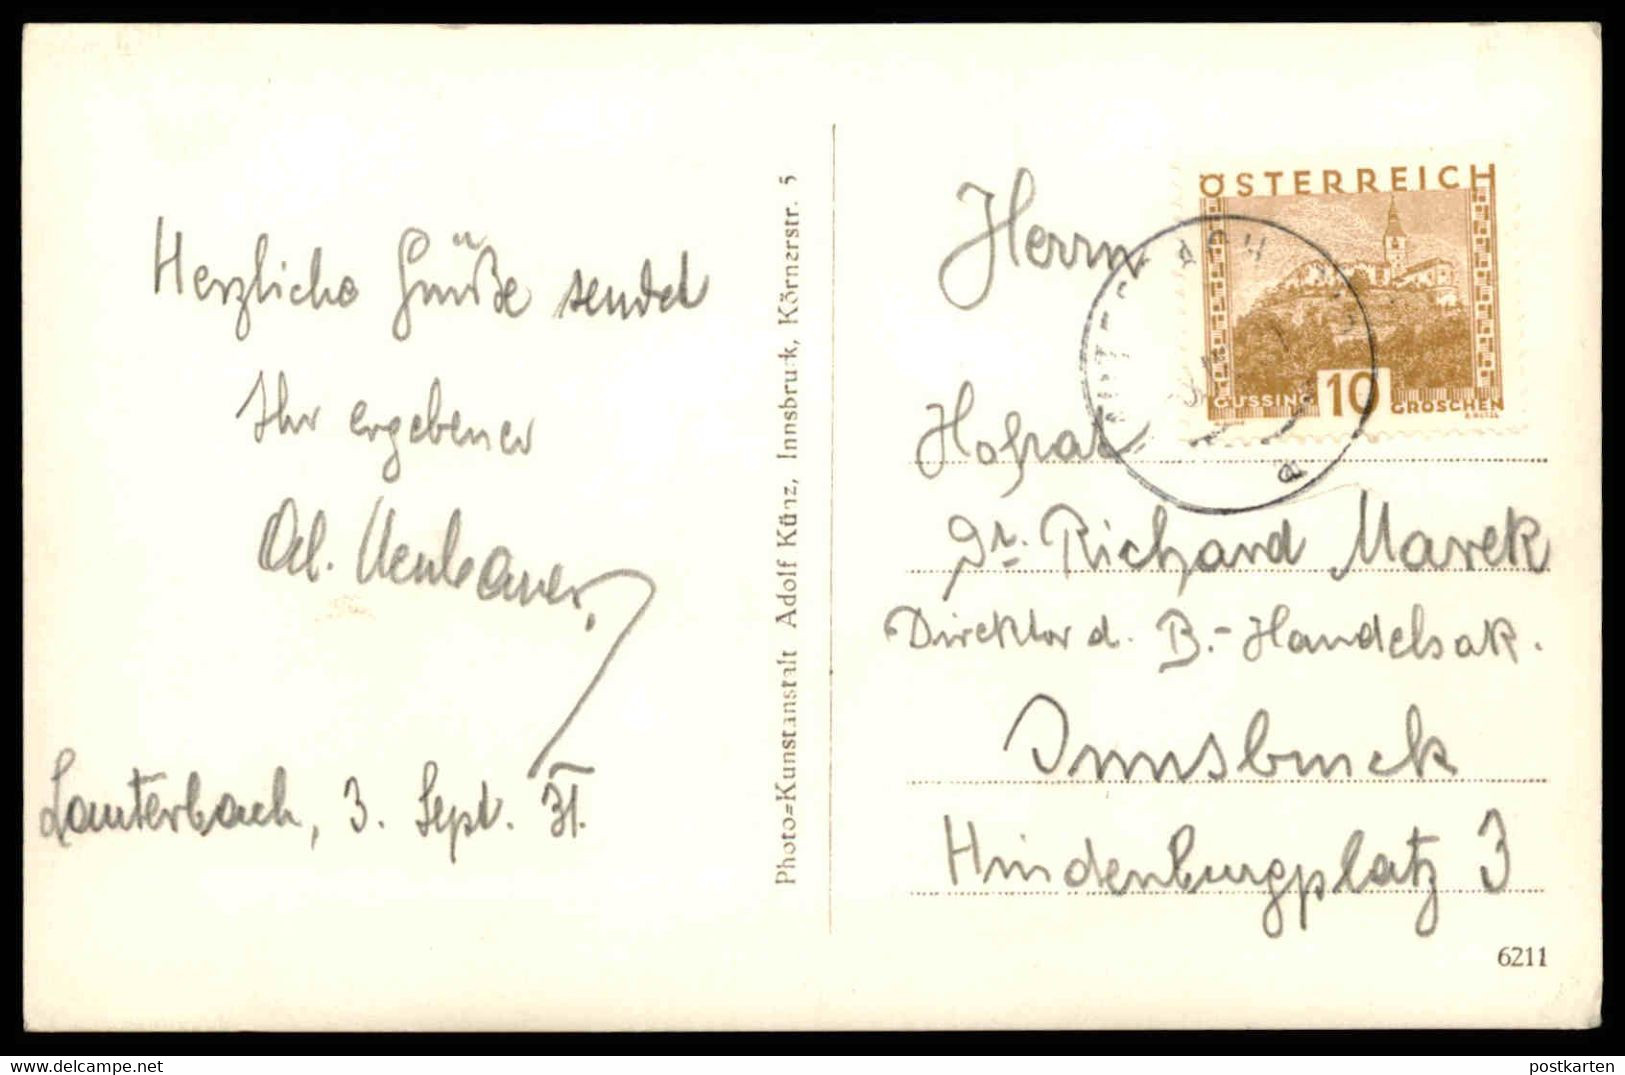 Herzliche Grüße sendet
Ihr ergebener
Ad. Neuhauser.
Lauterbach, 3. Sept. 31.
Photo=Kunstanstalt Adolf Künz, Innsbruck, Körnerstr. 5
ÖSTERREICH
GÜSSING 10 GROSCHEN
Herrn
Hofrat
Dr. Richard Marek
Direktor d. B.-Handelsak.
Innsbruck
Hindenburgplatz 3
6211
delcampe.net
postkarten